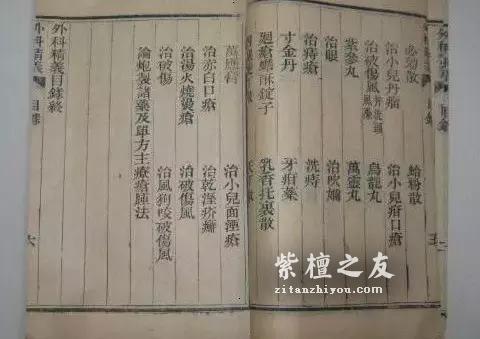 必効散 蛤粉散
治小兒丹瘤 治小兒疳口瘡
治破傷風 烏龍丸
紫參丸 萬靈丸
治眼 治吹嬭
治痔瘡 洗痔
寸金丹 牙疳藥
廻瘡蟾酥錠子 乳香托裏散
萬應膏 治小兒面湮瘡
治赤白口瘡 治乾溼疥癬
治湯火燒燙瘡 治破傷風
治破傷 治風狗咬破傷風
論炮製諸藥及單方主療瘡腫法
外科精義目錄終
外科精義 目錄 六
紫檀之友
zitanzhiyou.com